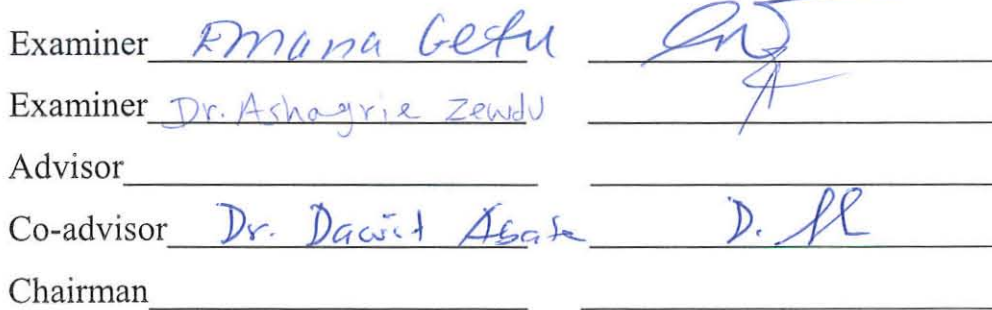 Examiner Emana Getu
Examiner Dr. Ashagrie Zewdu
Advisor
Co-advisor Dr. Dawit Abate D.
Chairman